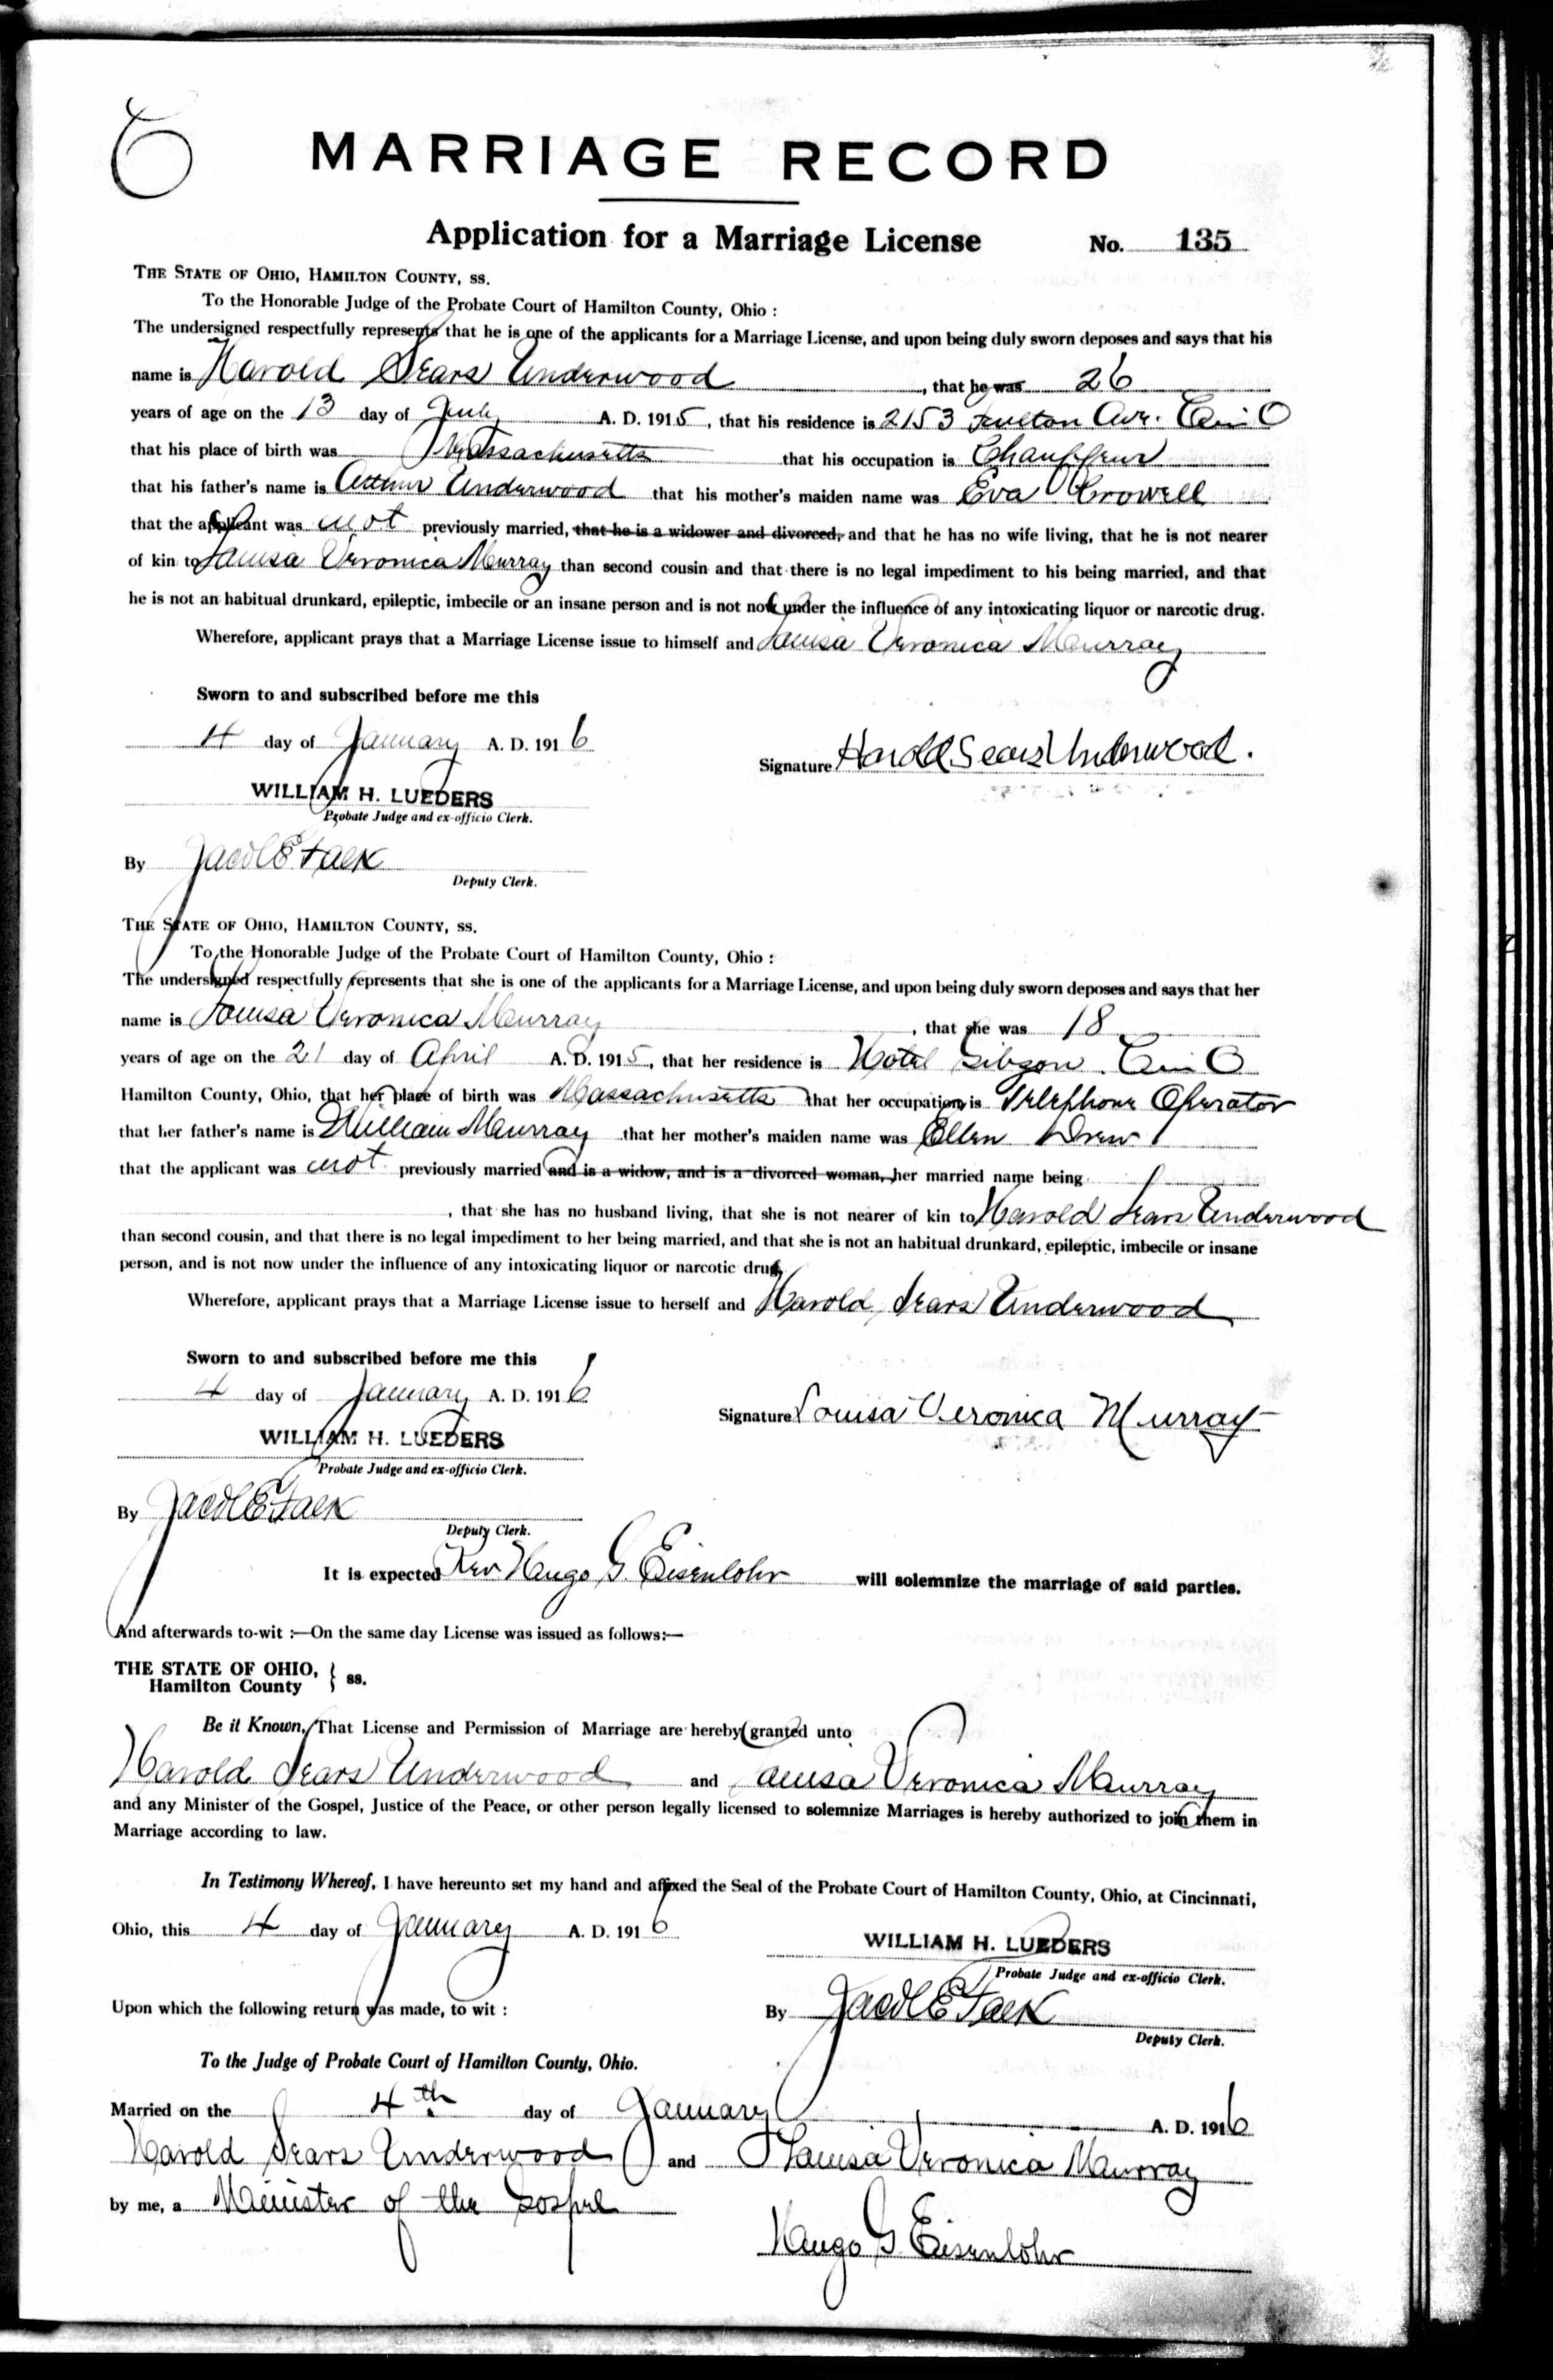 MARRIAGE RECORD
Application for a Marriage License No. 135
THE STATE OF OHIO, HAMILTON COUNTY, SS.
To the Honorable Judge of the Probate Court of Hamilton County, Ohio :
The undersigned respectfully represents that he is one of the applicants for a Marriage License, and upon being duly sworn deposes and says that his
name is Harold Sears Underwood , that he was 26
years of age on the 13 day of July A. D. 1915, that his residence is 2153 Fulton Ave. Cin O
that his place of birth was Massachusetts that his occupation is Chauffeur
that his father's name is Arthur Underwood that his mother's maiden name was Eva Crowell
that the applicant was not previously married, that he is a widower and divorced, and that he has no wife living, that he is not nearer
of kin to Louisa Veronica Murray than second cousin and that there is no legal impediment to his being married, and that
he is not an habitual drunkard, epileptic, imbecile or an insane person and is not now under the influence of any intoxicating liquor or narcotic drug.
Wherefore, applicant prays that a Marriage License issue to himself and Louisa Veronica Murray
Sworn to and subscribed before me this
4 day of January A. D. 1916
Signature Harold Sears Underwood.
WILLIAM H. LUEDERS
Probate Judge and ex-officio Clerk.
By Jacob E Falk
Deputy Clerk.
THE STATE OF OHIO, HAMILTON COUNTY, SS.
To the Honorable Judge of the Probate Court of Hamilton County, Ohio :
The undersigned respectfully represents that she is one of the applicants for a Marriage License, and upon being duly sworn deposes and says that her
name is Louisa Veronica Murray , that she was 18
years of age on the 21 day of April A. D. 1915, that her residence is Hotel Gibson. Cin O
Hamilton County, Ohio, that her place of birth was Massachusetts that her occupation is Telephone Operator
that her father's name is William Murray that her mother's maiden name was Ellen Drew
that the applicant was not previously married and is a widow, and is a divorced woman, her married name being
, that she has no husband living, that she is not nearer of kin to Harold Sears Underwood
than second cousin, and that there is no legal impediment to her being married, and that she is not an habitual drunkard, epileptic, imbecile or insane
person, and is not now under the influence of any intoxicating liquor or narcotic drug.
Wherefore, applicant prays that a Marriage License issue to herself and Harold Sears Underwood
Sworn to and subscribed before me this
4 day of January A. D. 1916
Signature Louisa Veronica Murray
WILLIAM H. LUEDERS
Probate Judge and ex-officio Clerk.
By Jacob E Falk
Deputy Clerk.
It is expected Rev Hugo G. Eisenlohr will solemnize the marriage of said parties.
And afterwards to-wit :—On the same day License was issued as follows:—
THE STATE OF OHIO, } ss.
Hamilton County
Be it Known, That License and Permission of Marriage are hereby granted unto
Harold Sears Underwood and Louisa Veronica Murray
and any Minister of the Gospel, Justice of the Peace, or other person legally licensed to solemnize Marriages is hereby authorized to join them in
Marriage according to law.
In Testimony Whereof, I have hereunto set my hand and affixed the Seal of the Probate Court of Hamilton County, Ohio, at Cincinnati,
Ohio, this 4 day of January A. D. 1916
WILLIAM H. LUEDERS
Probate Judge and ex-officio Clerk.
Upon which the following return was made, to wit :
By Jacob E Falk
Deputy Clerk.
To the Judge of Probate Court of Hamilton County, Ohio.
Married on the 4th day of January A. D. 1916
Harold Sears Underwood and Louisa Veronica Murray
by me, a Minister of the Gospel
Hugo G. Eisenlohr